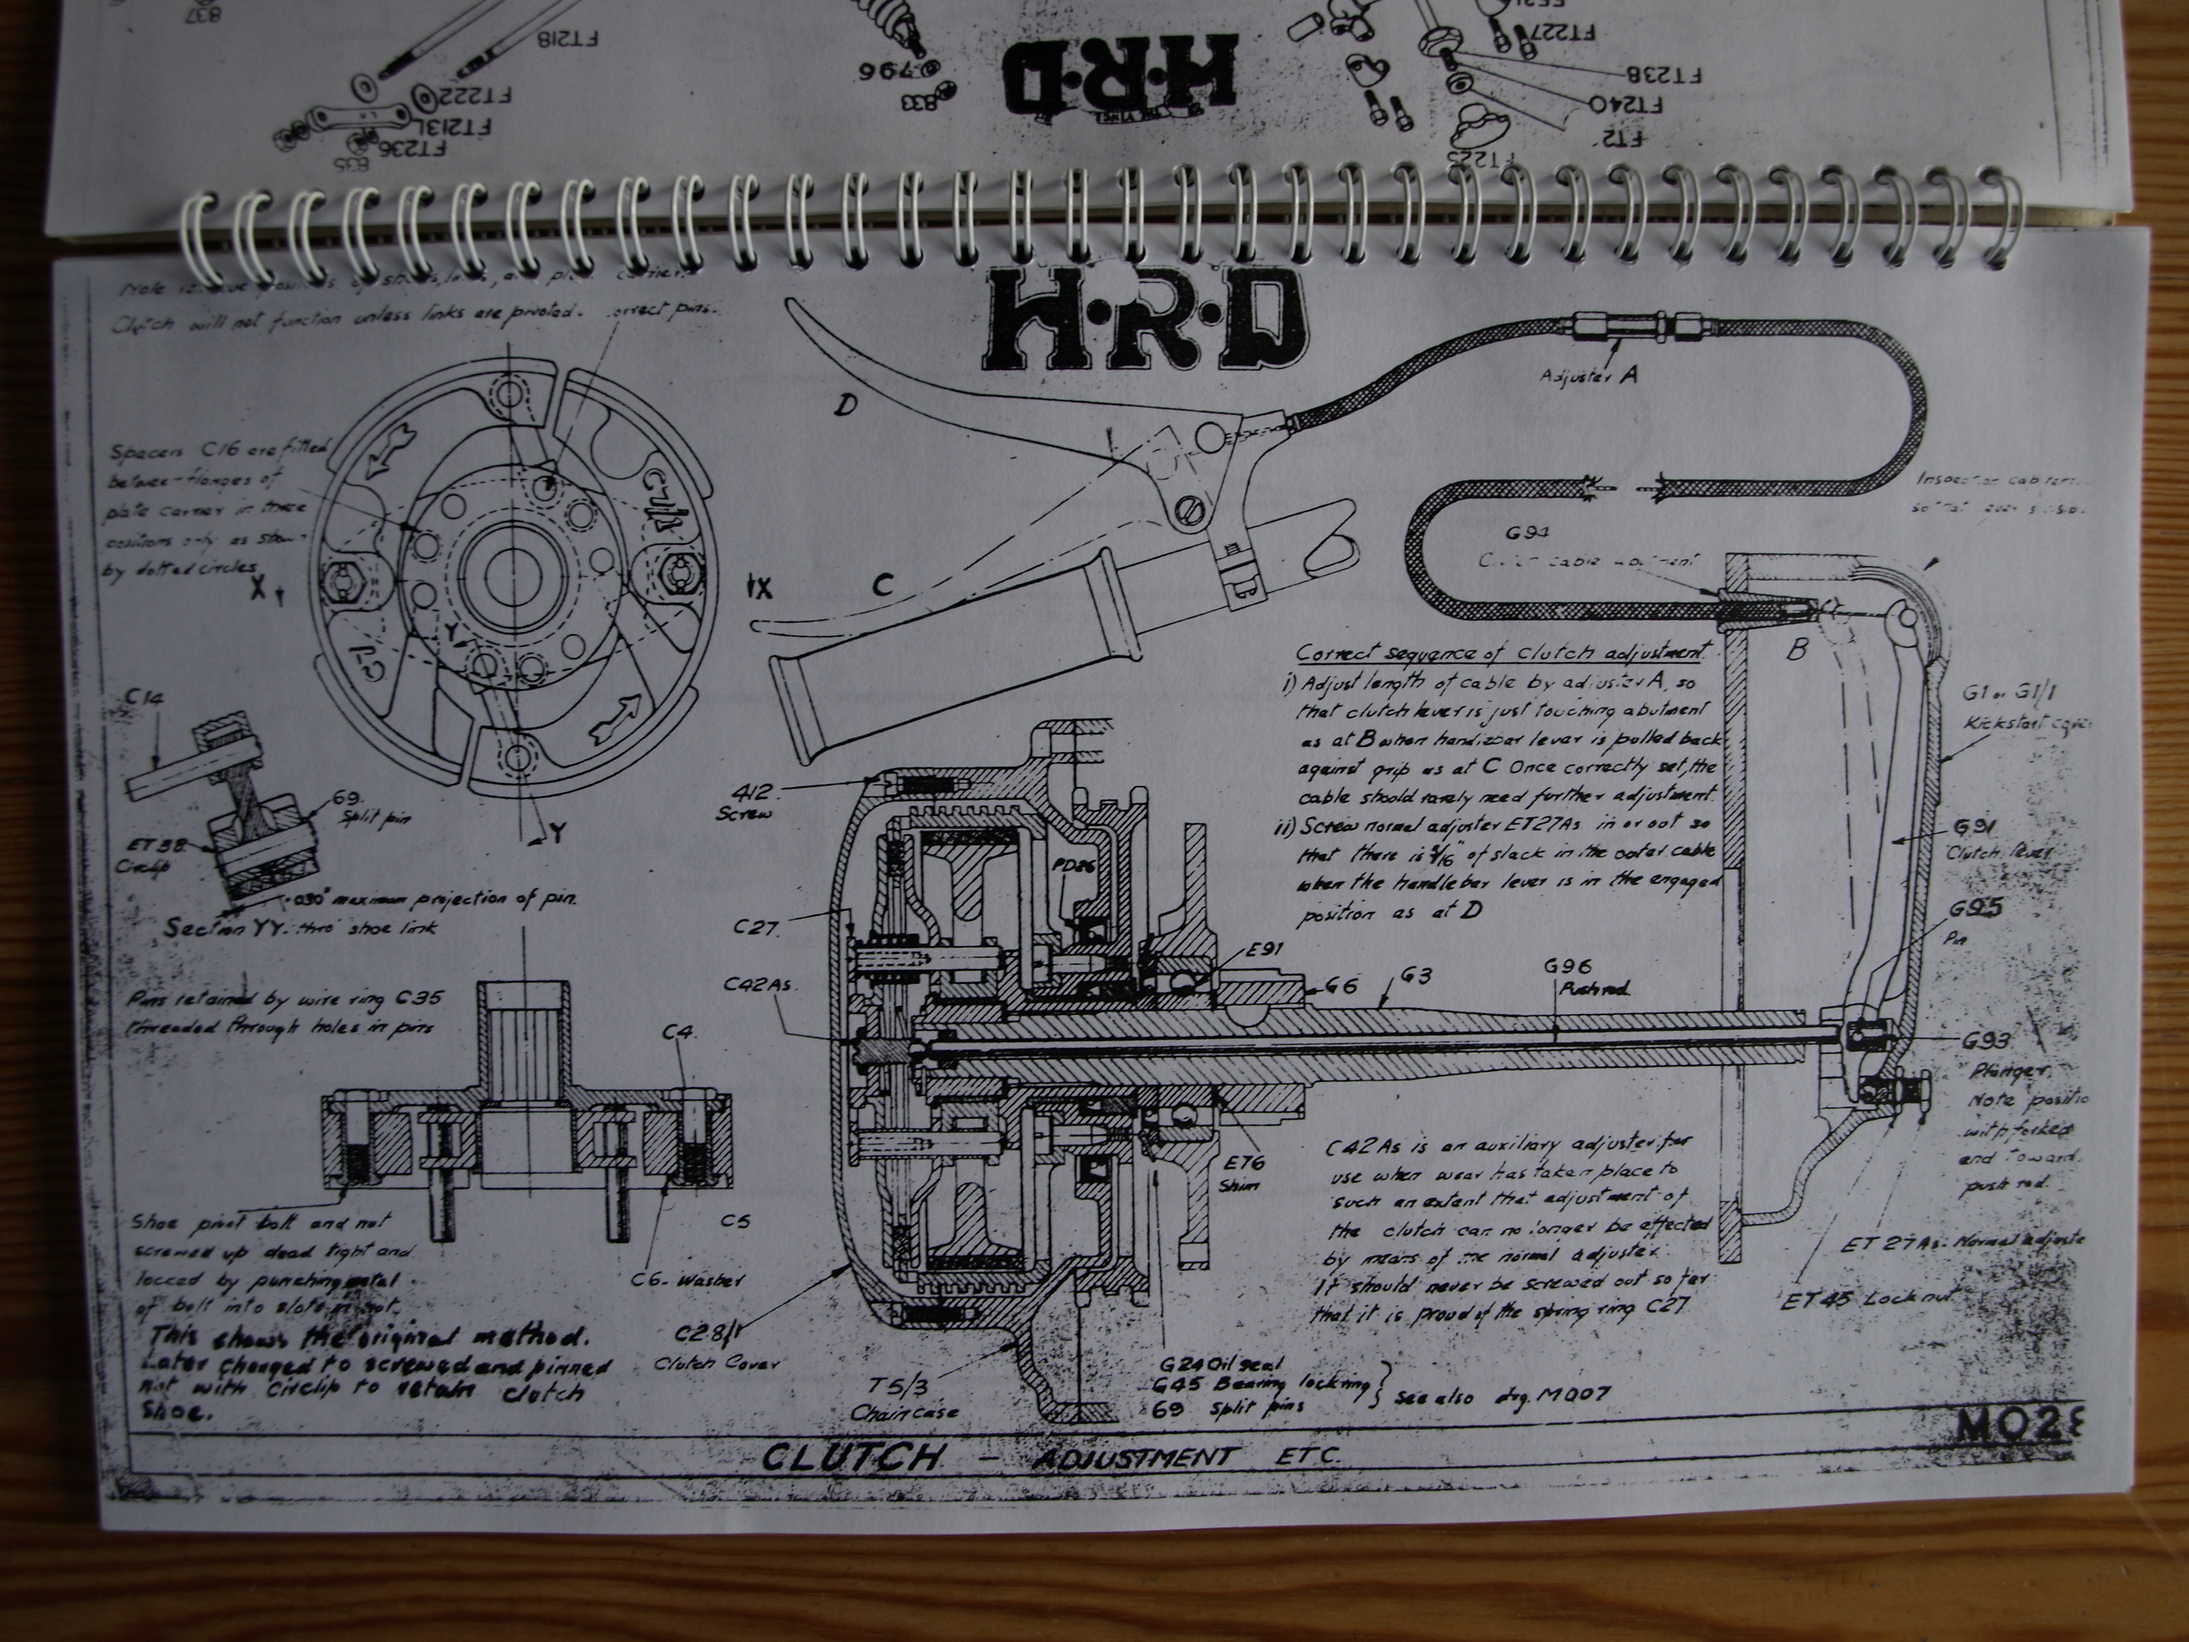 837
FT218
FT222
FT213L
FT236
835
796
833
H·R·D
FT227
FT238
FT240
FT2
H·R·D
Note
Clutch will not function unless links are pivoted. correct pins.
Spacers C16 are fitted
between flanges of
plate carrier in three
positions only as shown
by dotted circles
X
X
C7/1S
C7
Y
Y
C14
69
Split pin
ET38
Circlip
.030" maximum projection of pin.
Section YY. thro' shoe link
Pins retained by wire ring C35
threaded through holes in pins
C4
C5
C6 - Washer
Shoe pivot bolt and nut
screwed up dead tight and
locked by punching metal
of bolt into slots in nut.
This shows the original method.
Later changed to screwed and pinned
nut with Circlip to retain clutch
Shoe.
D
C
Adjuster A
G94
Clutch cable abutment
B
G1 or G1/1
Kickstart cover
Correct sequence of clutch adjustment
i) Adjust length of cable by adjuster A, so
that clutch lever is just touching abutment
as at B when handlebar lever is pulled back
against grip as at C Once correctly set, the
cable should rarely need further adjustment.
ii) Screw normal adjuster ET27As in or out so
that there is 3/16" of slack in the outer cable
when the handlebar lever is in the engaged
position as at D
412
Screw
PD26
C27
C42As.
E91
G6
G3
G96
Push rod
G91
Clutch lever
G95
Pin
G93
Plunger.
Note positio
with forked
end toward
push rod
E76
Shim
C42As is an auxiliary adjuster for
use when wear has taken place to
such an extent that adjustment of
the clutch can no longer be effected
by means of the normal adjuster.
It should never be screwed out so far
that it is proud of the spring ring C27.
ET27As. Normal adjuste
ET45 Lock nut
C28/1
Clutch Cover
T5/3
Chaincase
G24 Oil seal
G45 Bearing lockring
69 Split pins
See also drg. MO07
CLUTCH - ADJUSTMENT ETC.
MO28